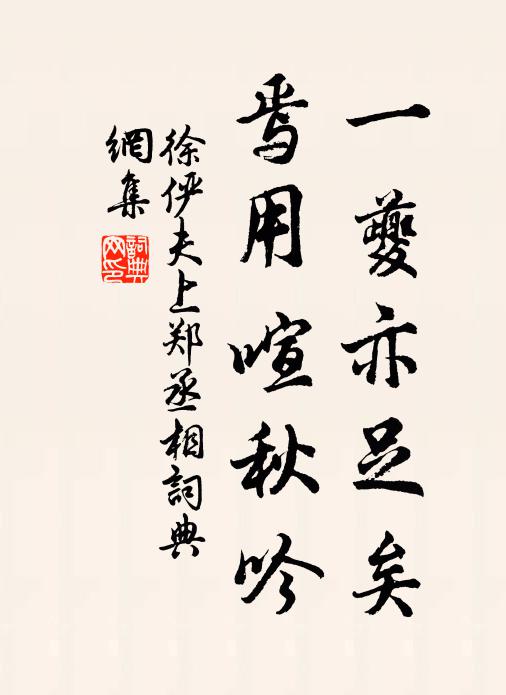 一夔亦足矣
焉用喧秋吟
徐俨夫上郑丞相詞典
網集
詞典
网印